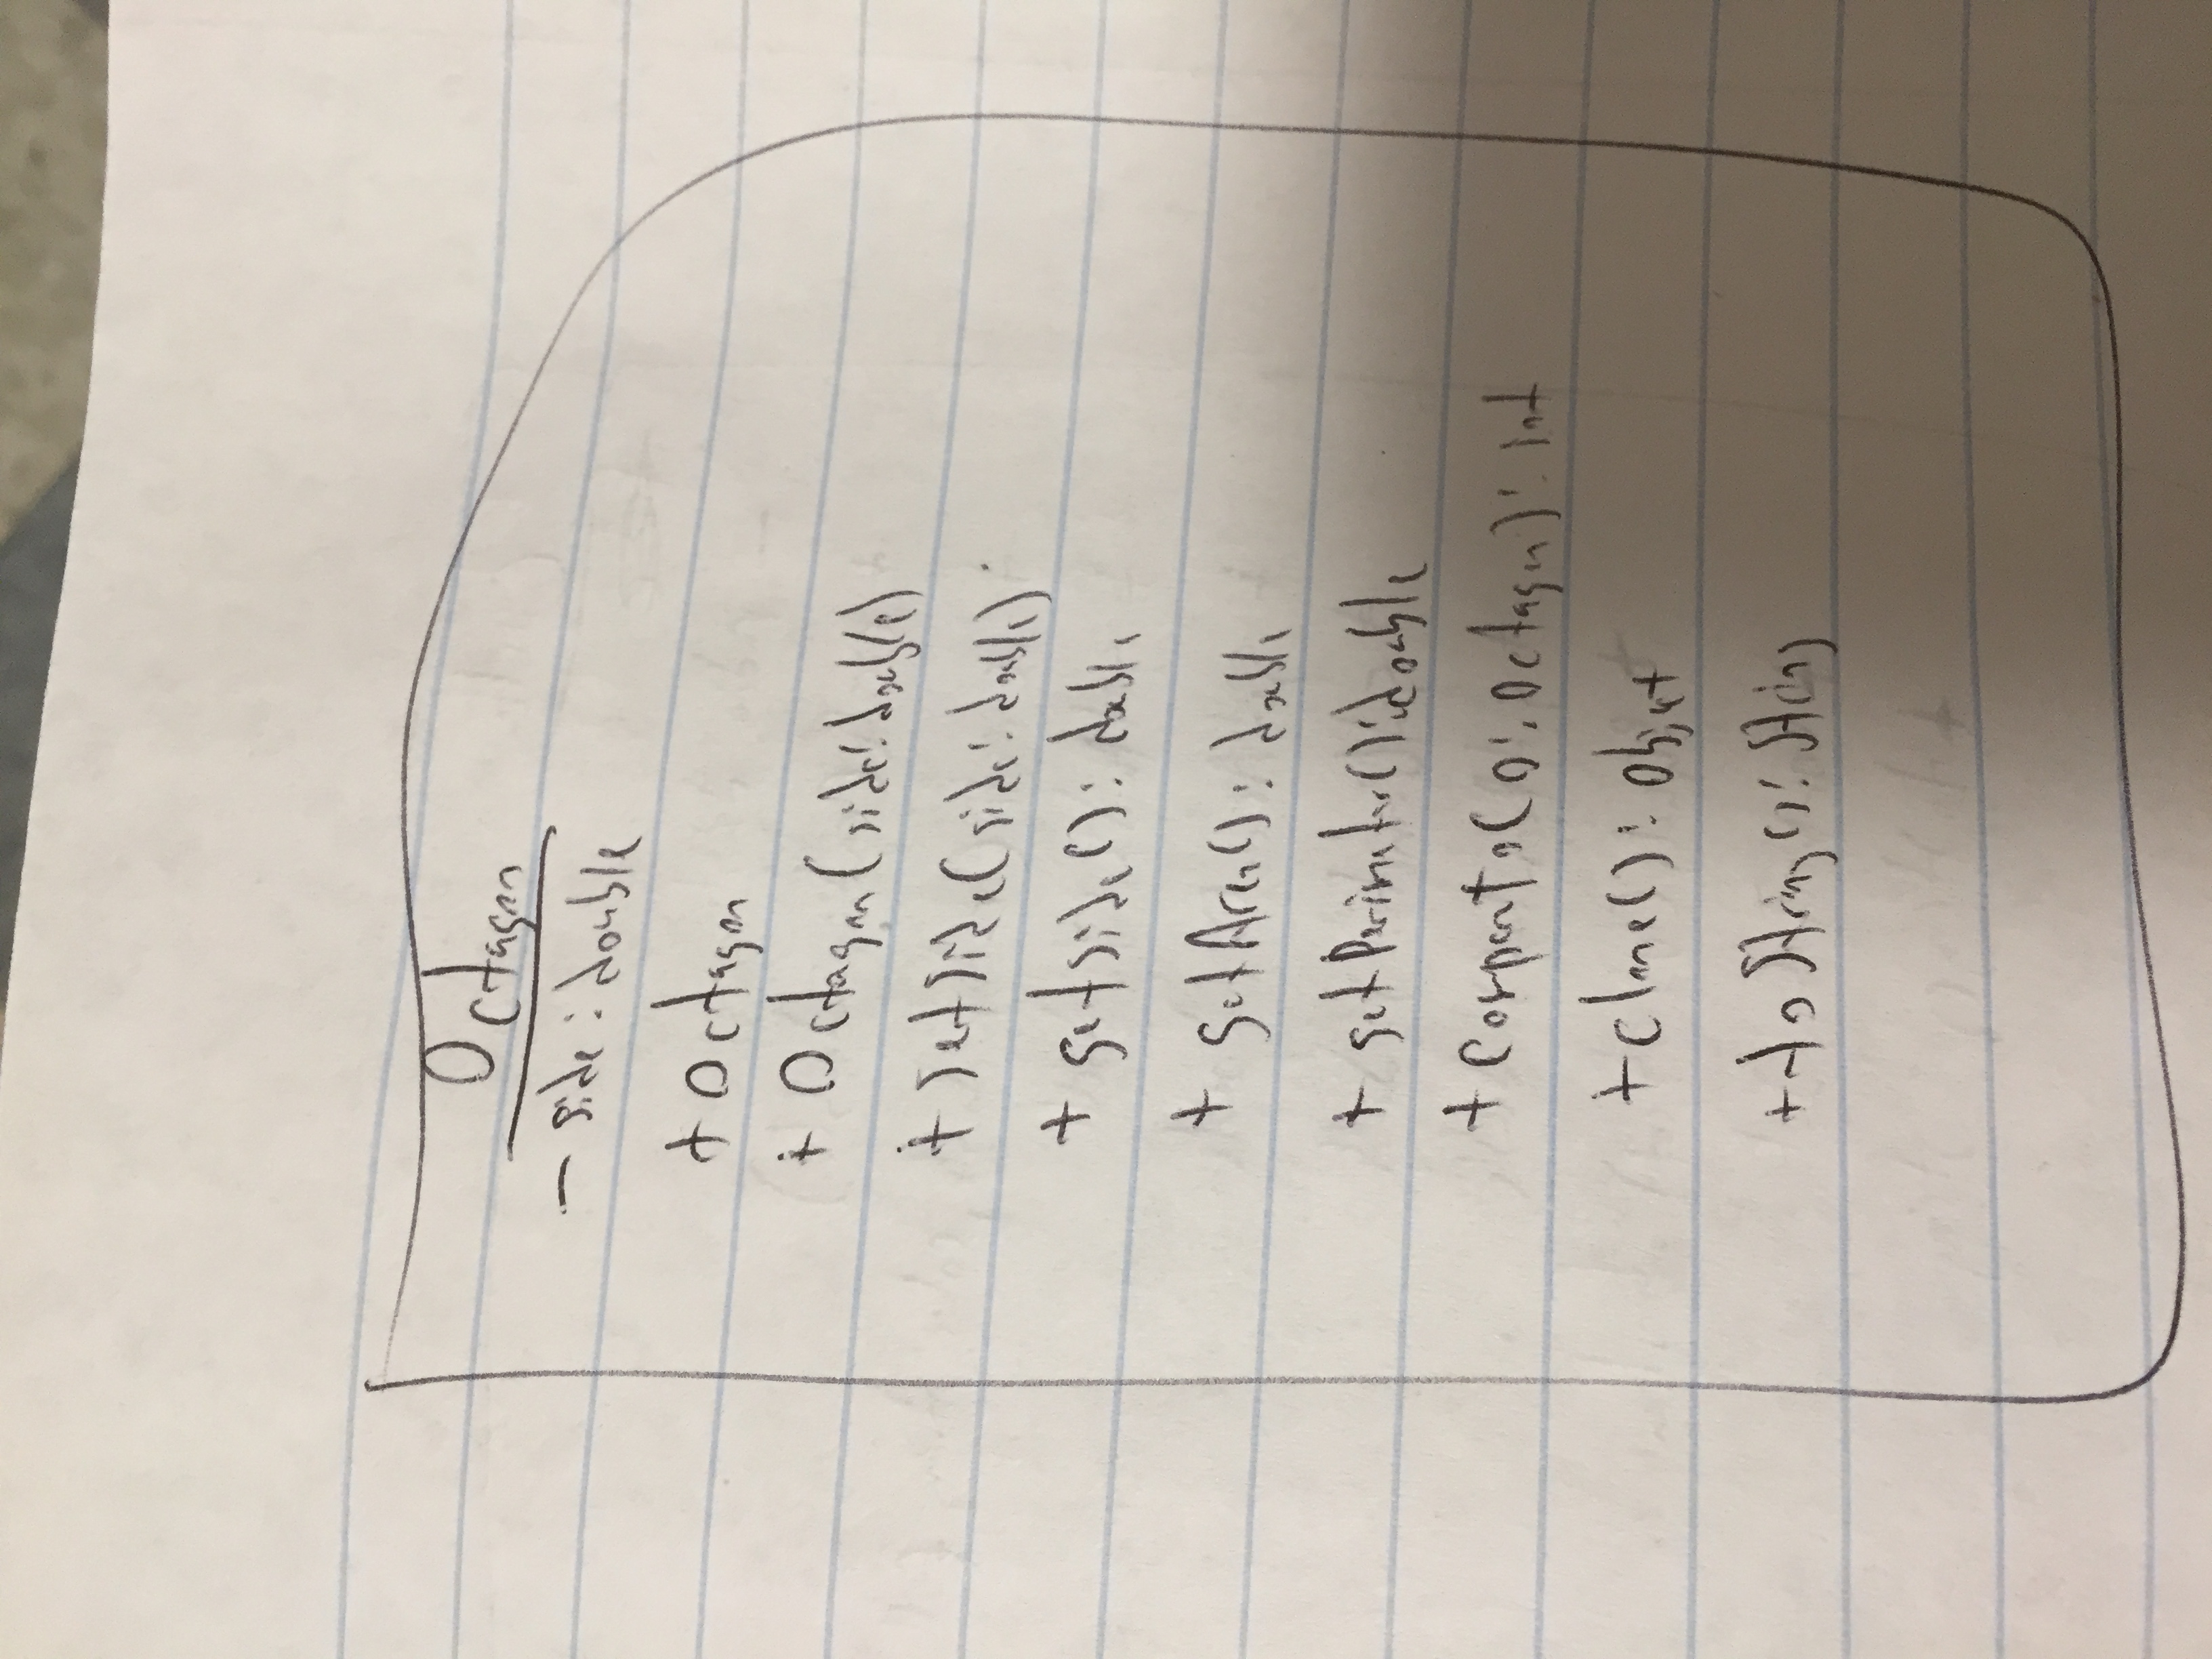 Octagon
- side : double
+ Octagon
+ Octagon (side: double)
+ setside(side: double)
+ getside(): double
+ getArea(): double
+ getPerimeter(): double
+ Compareto(O: Octagon): int
+ clone(): Object
+ toString(): String